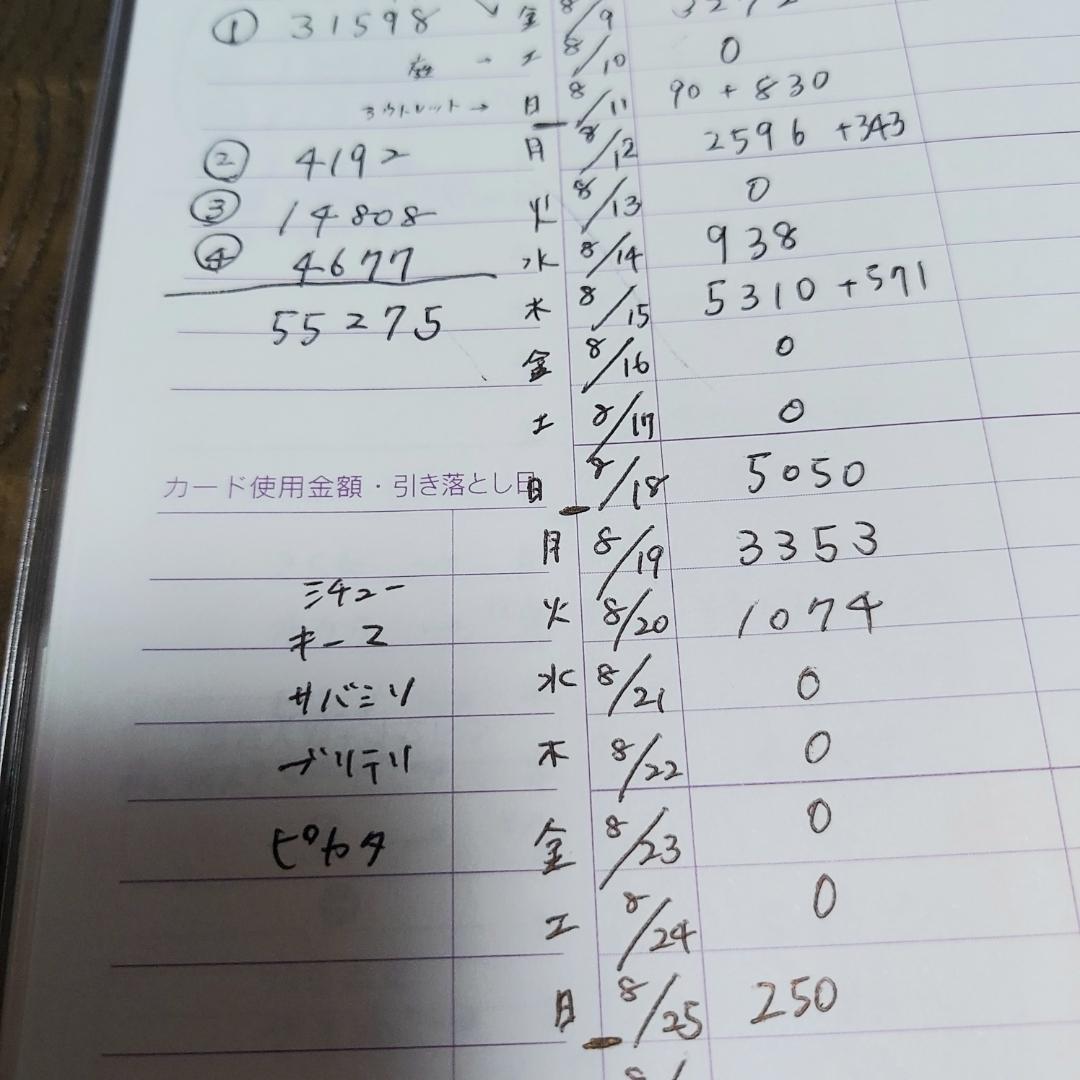 ① 31598 金 8/9
→ 土 8/10 0
アウトレット→ 日 8/11 90 + 830
② 4192 月 8/12 2596 +343
③ 14808 火 8/13 0
④ 4677 水 8/14 938
55275 木 8/15 5310 +571
金 8/16 0
土 8/17 0
カード使用金額・引き落とし日 日 8/18 5050
月 8/19 3353
ミチュー 火 8/20 1074
キーマ 水 8/21 0
サバミソ 木 8/22 0
ブリテリ 金 8/23 0
ピカタ 土 8/24 0
日 8/25 250